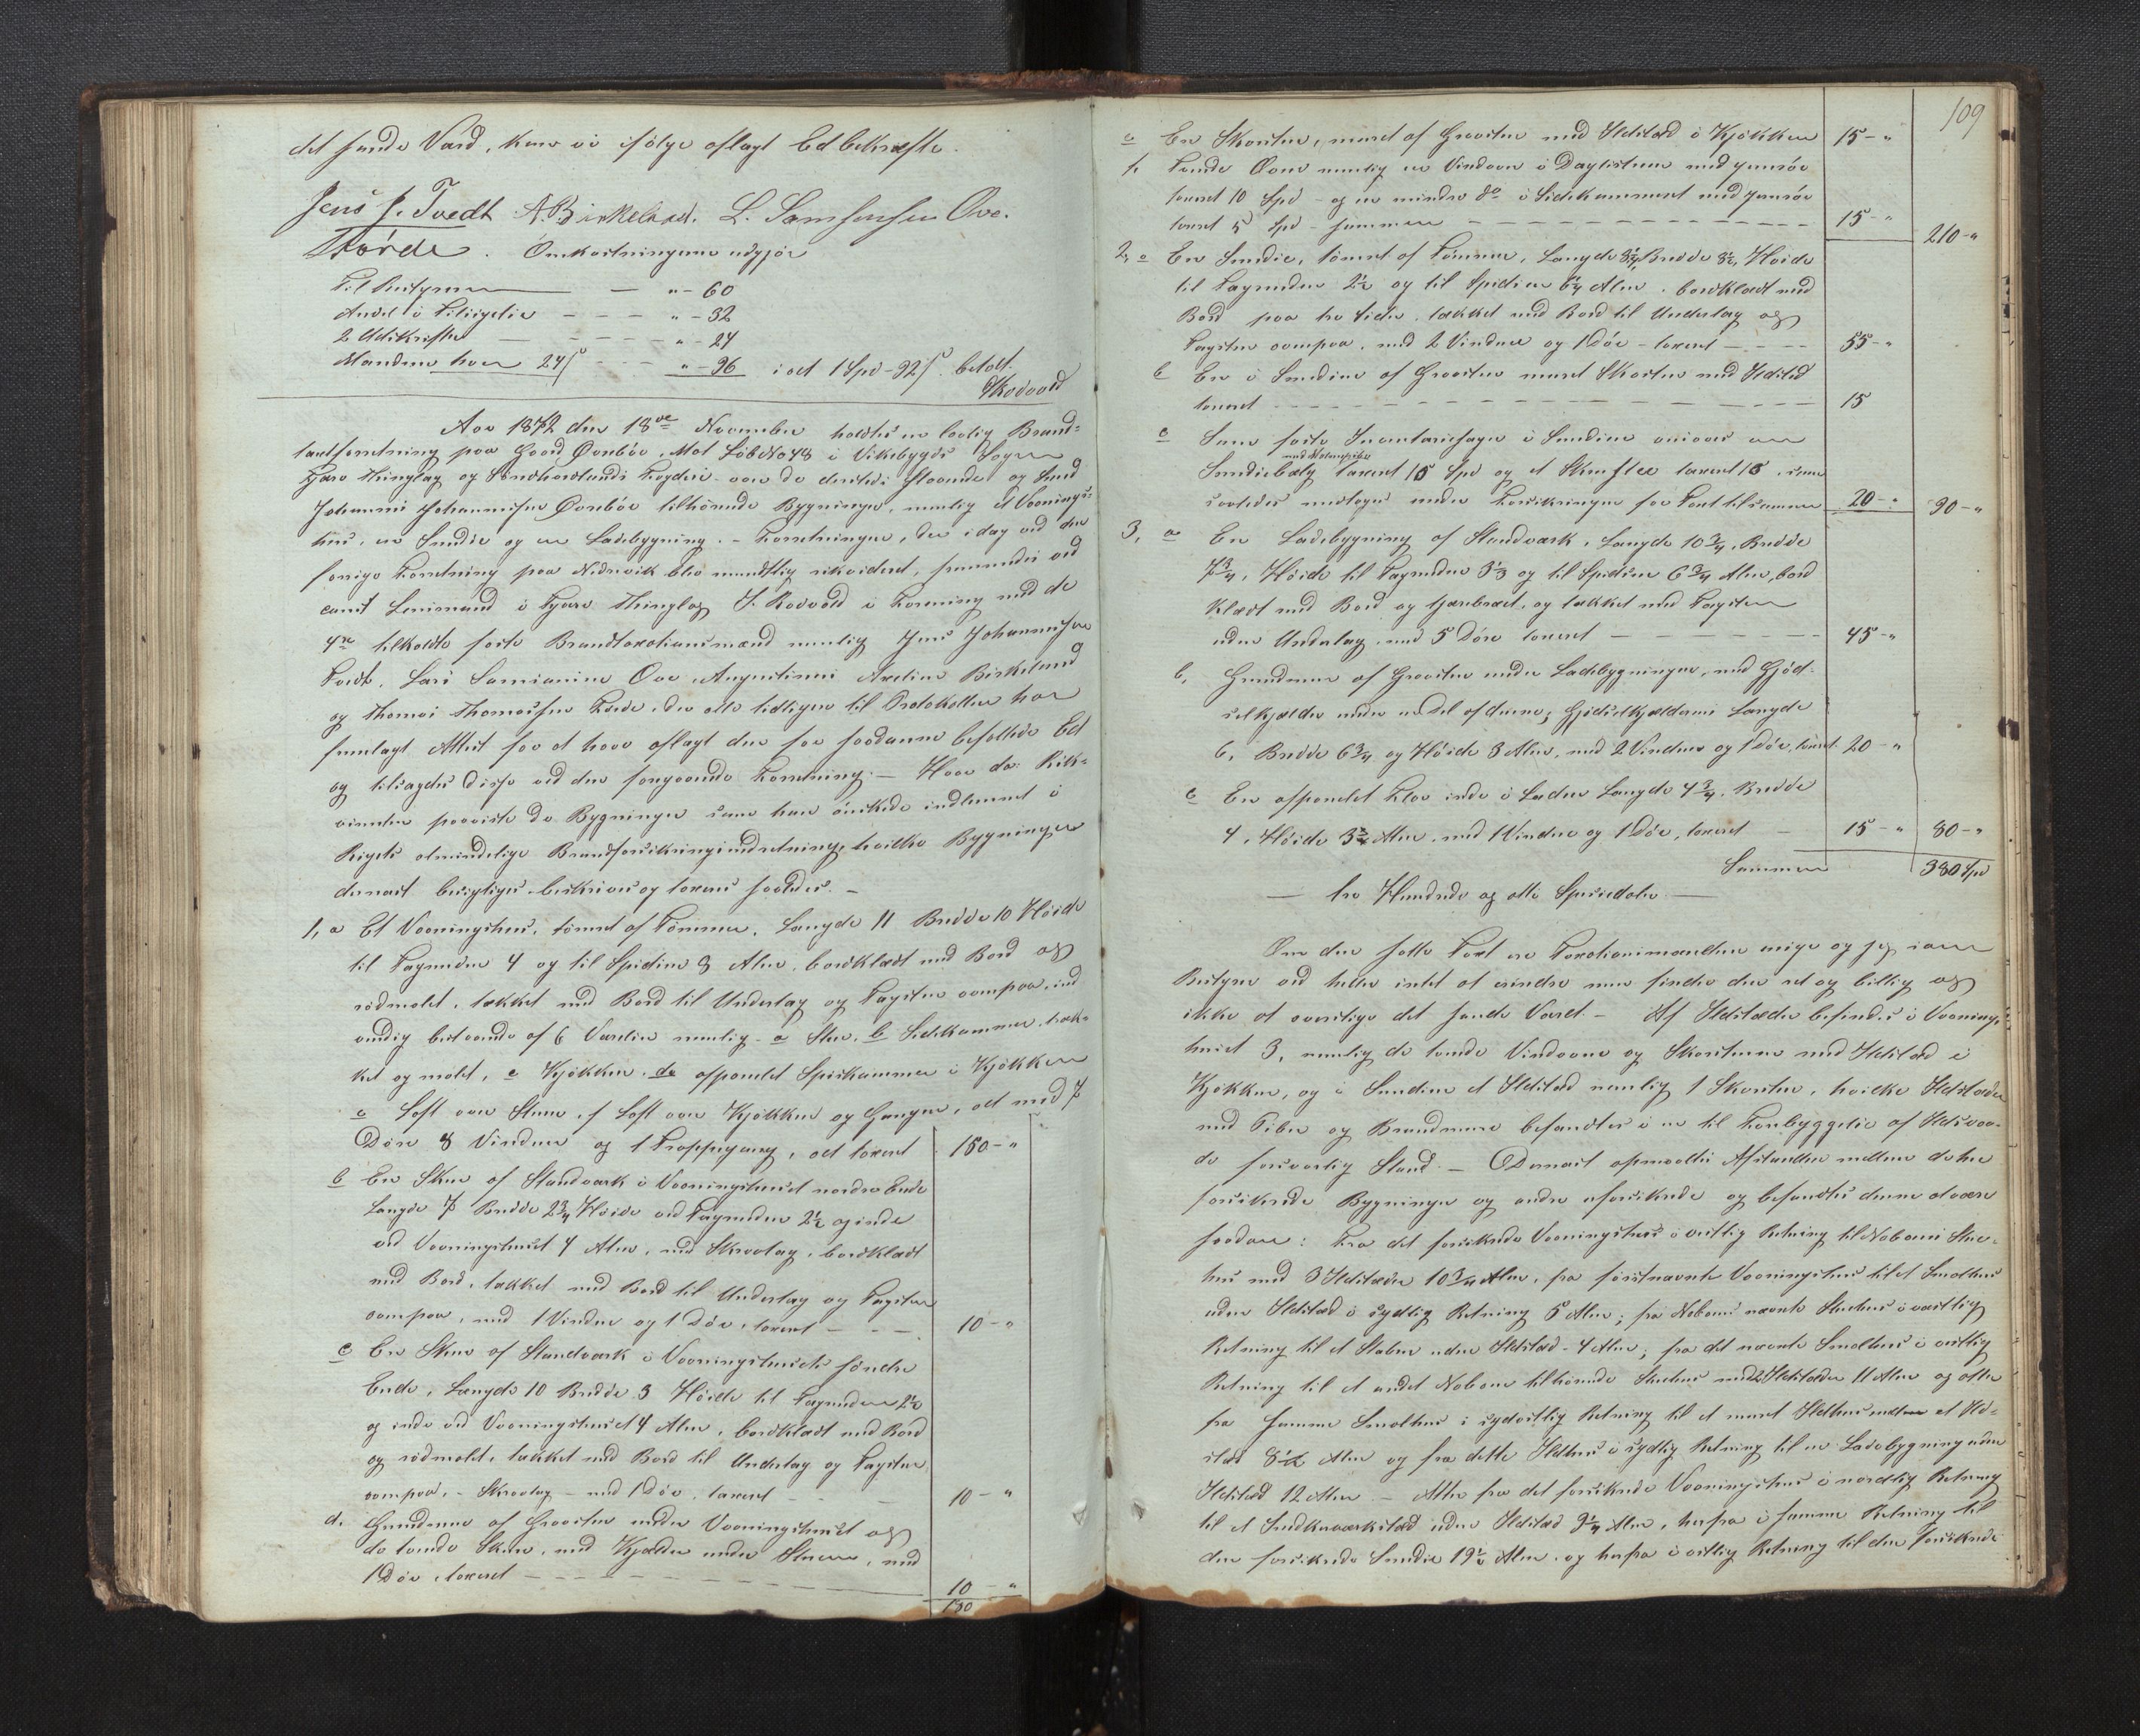 det sande Værd, kan vi ifølge aflagt Ed bekræfte.
Jens J. Tvedt A. Birkeland. L. Samsonsen Ove.
Förde. Omkostningerne udgjør
Til Bestyreren — " - 60
Andel i Tilsigelse - - - " - 32
2 Udskrifter — - - - " - 24
Mændene hver 24 s - - - " - 96 i alt 1 Spd - 92 s. betalt.
Rodvold
Aar 1872 den 18de November holdtes en lovlig Brand-
taxtforretning paa Gaard Ønebøe, Mat Løb No 48 i Vikebygds Sogn
Fjære Thinglag og Søndhordlands Fogderi over de dersteds staaende og
Johannes Johannesen Ønebøe tilhørende Bygninger, nemlig et Vaanings-
huus, en Smedie og en Ladebygning. - Forretningen, der idag ved den
forrige Forretning paa Nedrevik blev mundtlig rekvireret, fremmedes ved
const Lensmand i Fjære Thinglag J. Rodvold i Forening med de
4re tilkaldte faste Brandtaxationsmænd nemlig Jens Johannesen
Tvedt, Lars Samsonsen Ove, Augustinus Axelsen Birkeland
og Thomas Thomassen Førde, der alle tidligere til Protokollen har
fremlagt Attest for at have aflagt den for saadanne befalede Ed
og tilsagdes disse ved den foregaaende Forretning. — Hvor da Rek-
virenten paaviste de Bygninger som han ønskede indlemmet i
Rigets almindelige Brandforsikringsindretning, hvilke Bygninger
dernæst besigtiges beskrives og taxeres saaledes. -
1, a Et Vaaningshuus, tømret af Tømmer. Længde 11 Bredde 10 Høide
til Tagrenden 4 og til Spidsen 8 Alen, bordklædt med Bord og
rødmalet, tækket med Bord til Underlag og Tagsten ovenpaa, ind-
vendig bestaaende af 6 Værelser nemlig - a Stue, b Sidekammer, træk-
ket og malet, c Kjøkken, d afpanelet Spisekammer i Kjøkken
e Loft over Stuen, f Loft over Kjøkken og Gangen, alt med 7
Døre 8 Vinduer og 1 Trappegang, alt taxeret 150 - "
b En Skur af Standværk i Vaaningshuset nordre Ende
Længde 7 Bredde 2 3/4 Høide ved Tagrenden 2 1/2 og inde
ved Vaaningshuset 4 Alen, med Skraatag, bordklædt
med Bord, tækket med Bord til Underlag og Tagsten
ovenpaa, med 1 Vindue og 1 Dør, taxeret - - - 10 - "
c En Skur af Standværk i Vaaningshusets søndre
Ende, Længde 10 Bredde 3 Høide til Tagrenden 2 1/2
og inde ved Vaaningshuset 4 Alen, bordklædt med Bord
og rødmalet, tækket med Bord til Underlag og Tagsten
ovenpaa, - Skraatag - med 1 Dør, taxeret - - - 10 - "
d. Grundmur af Graasten under Vaaningshuset og
de tvende Skure, med Kjælder under Stuen, med
1 Dør, taxeret - - - 10 - "
180
109
e En Skorsten, muret af Graasten med Ildsted i Kjøkken 15 - "
f. Tvende Ovne nemlig en Vindovn i Dagligstuen med Jernrør
taxeret 10 Spd - og en mindre do i Sidekammeret med Jernrør
taxeret 5 Spd - sammen - - - 15 - " 210 - "
2, a En Smedie, tømret af Tømmer, Længde Bredde 8 1/2, Høide
til Tagrenden 2 1/2 og til Spidsen Alen, bordklædt med
Bord paa tre Sider, tækket med Bord til Underlag og
Tagsten ovenpaa, med 2 Vinduer og 1 Dør - taxeret - - - 55 - "
b En i Smedien af Graasten muret Skorsten med Ildsted
taxeret - - - 15
c Som faste Inventariesager i Smedien ansees en
Smediebælg taxeret 10 Spd og et Skruestee taxeret 10, som
saaledes medtages under Forsikringen for Taxt tilsammen 20 - " 90 - "
3, a En Ladebygning af Standværk, Længde 10 3/4, Bredde
7 3/4, Høide til Tagrenden 3 1/3 og til Spidsen 6 3/4 Alen, bord
klædt med Bord og tjærebrædt, og tækket med Tagsten
uden Underlag, med 5 Døre taxeret - - - 45 - "
b, Grundmur af Graasten under Ladebygningen, med Gjød-
selkjælder under en Del af denne; Gjødselkjælderens Længde
6, Bredde 6 3/4 og Høide 3 Alen, med 2 Vinduer og 1 Dør, taxeret 20 - "
c En afpanelet Flor inde i Laden Længde 4 3/4, Bredde
4, Høide Alen, med 1 Vindue og 1 Dør, taxeret - 15 - " 80 - "
Sammen 380 Spd
— tre Hundrede og otte Speciedaler. —
Om den satte Taxt er Taxationsmændene enige og jeg som
Bestyrer ved heller intet at erindre men finder den ret og billig og
ikke at overstige det sande Værd. - Af Ildsteder befindes i Vaanings-
huset 3, nemlig de tvende Vindovne og Skorstenen med Ildsted i
Kjøkken, og i Smedien et Ildsted nemlig 1 Skorsten, hvilke Ildsteder
med Piber og Brandmure befandtes i en til Forebyggelse af Ildsvaa-
de forsvarlig Stand. - Dernæst opmaaltes Afstanden mellem de her
forsikrede Bygninger og andre uforsikrede og befandtes denne at være
saadan: Fra det forsikrede Vaaningshuus i vestlig Retning til Naboens Stue-
hus med 3 Ildsteder 10 3/4 Alen, fra førstnævnte Vaaningshus til et Smalhus
uden Ildsted i sydlig Retning 5 Alen; fra Naboens nævnte Stuehus i vestlig
Retning til et Stabur uden Ildsted - 4 Alen; fra det nævnte Smalhus i vestlig
Retning til et andet Naboen tilhørende Stuehus med 2 Ildsteder 11 Alen og atter
fra samme Smalhus i sydvestlig Retning til et muret Ildhus med et Ild-
sted 8 1/2 Alen og fra dette Ildhus i sydlig Retning til en Ladebygning uden
Ildsted 12 Alen. - Atter fra det forsikrede Vaaningshus i nordlig Retning
til et uden Ildsted 9 1/4 Alen, herfra i samme Retning til
den forsikrede Smedie 19 1/2 Alen, og herfra i østlig Retning til den forsikrede